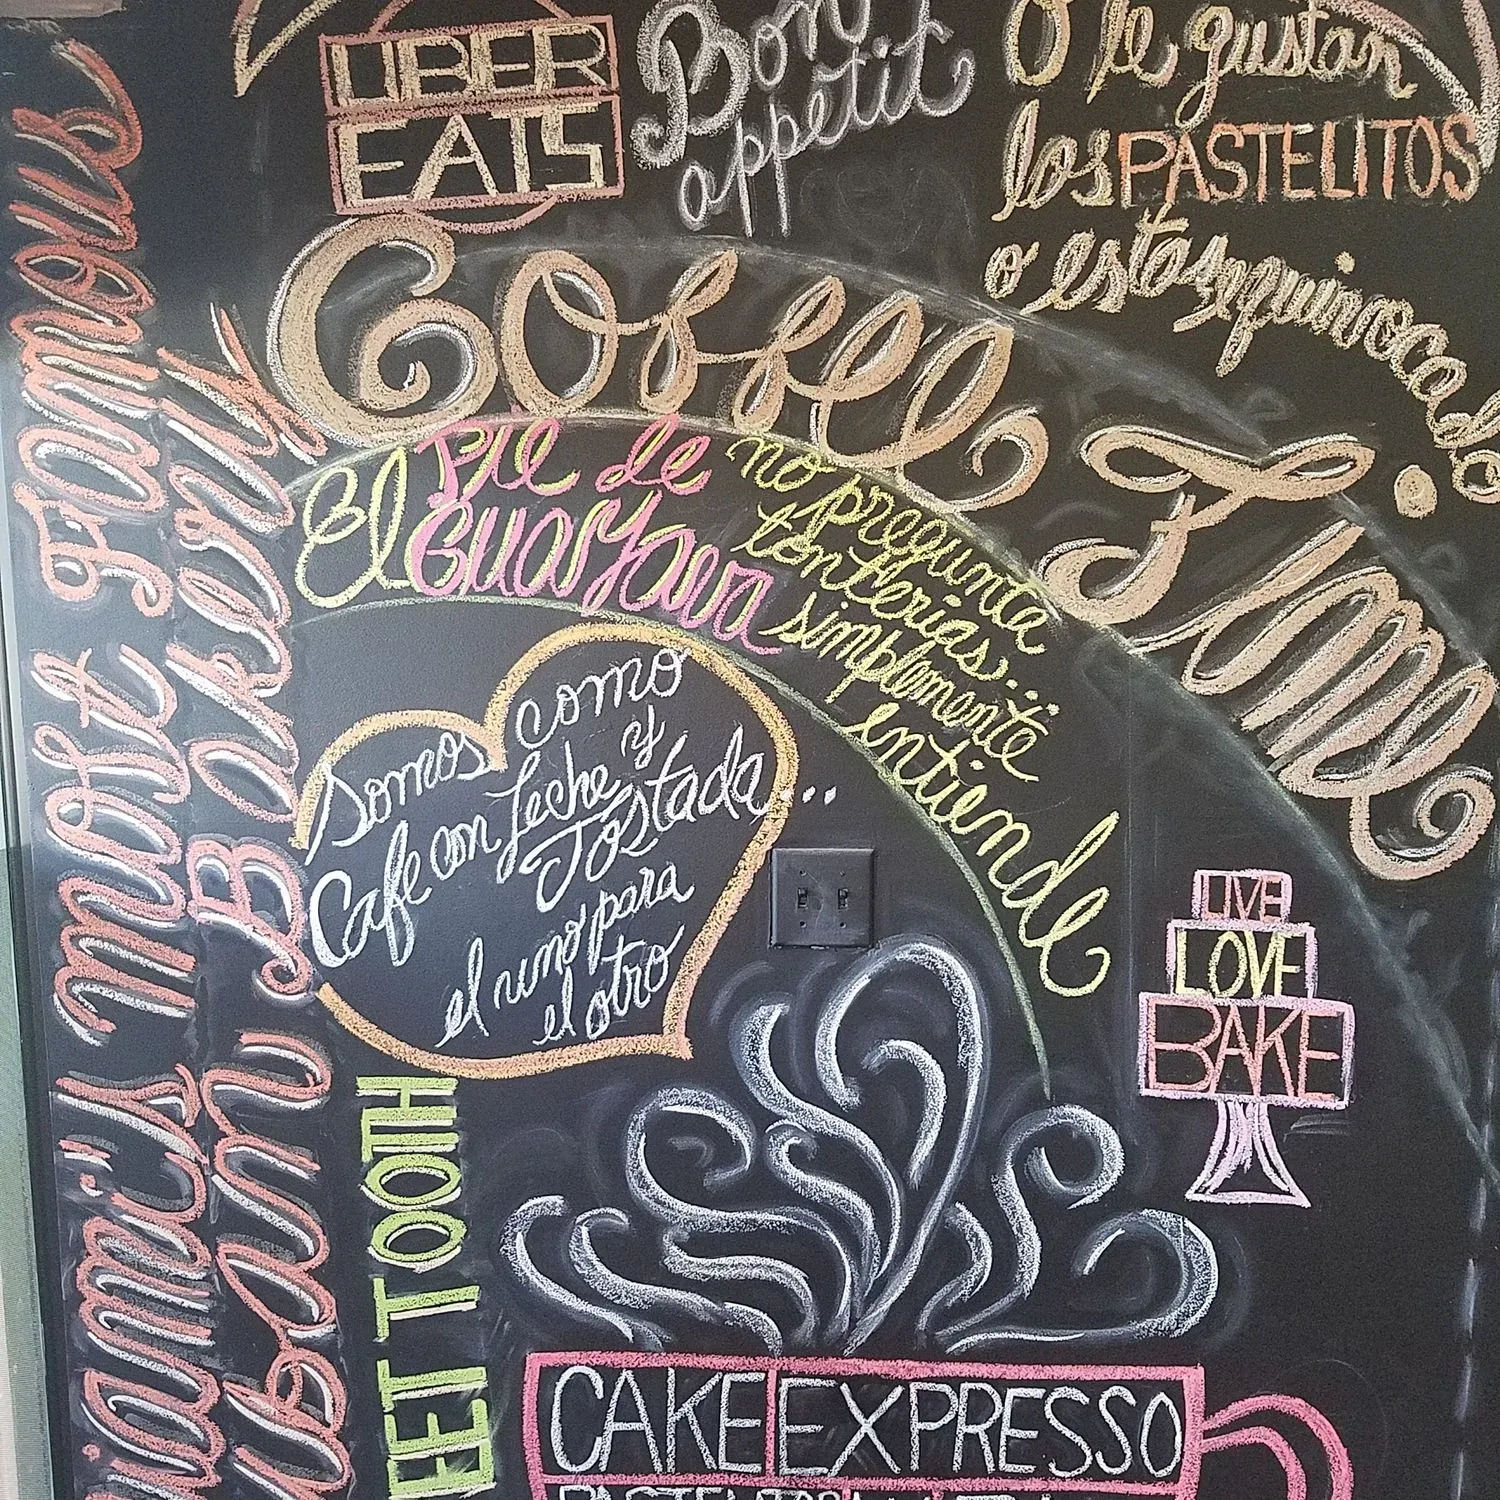 UBER
EATS
Bon
appetit
O le gustan
los PASTELITOS
o estas equinocado
Coffee Time
El PIE de
Guayava
no pregunta
tonterias...
simplemente
entiende
Somos como
Cafe con Leche y
Tostada...
el uno para
el otro
LIVE
LOVE
BAKE
CAKE EXPRESSO
iami's most Famous
uban Bakery
EET TOOTH